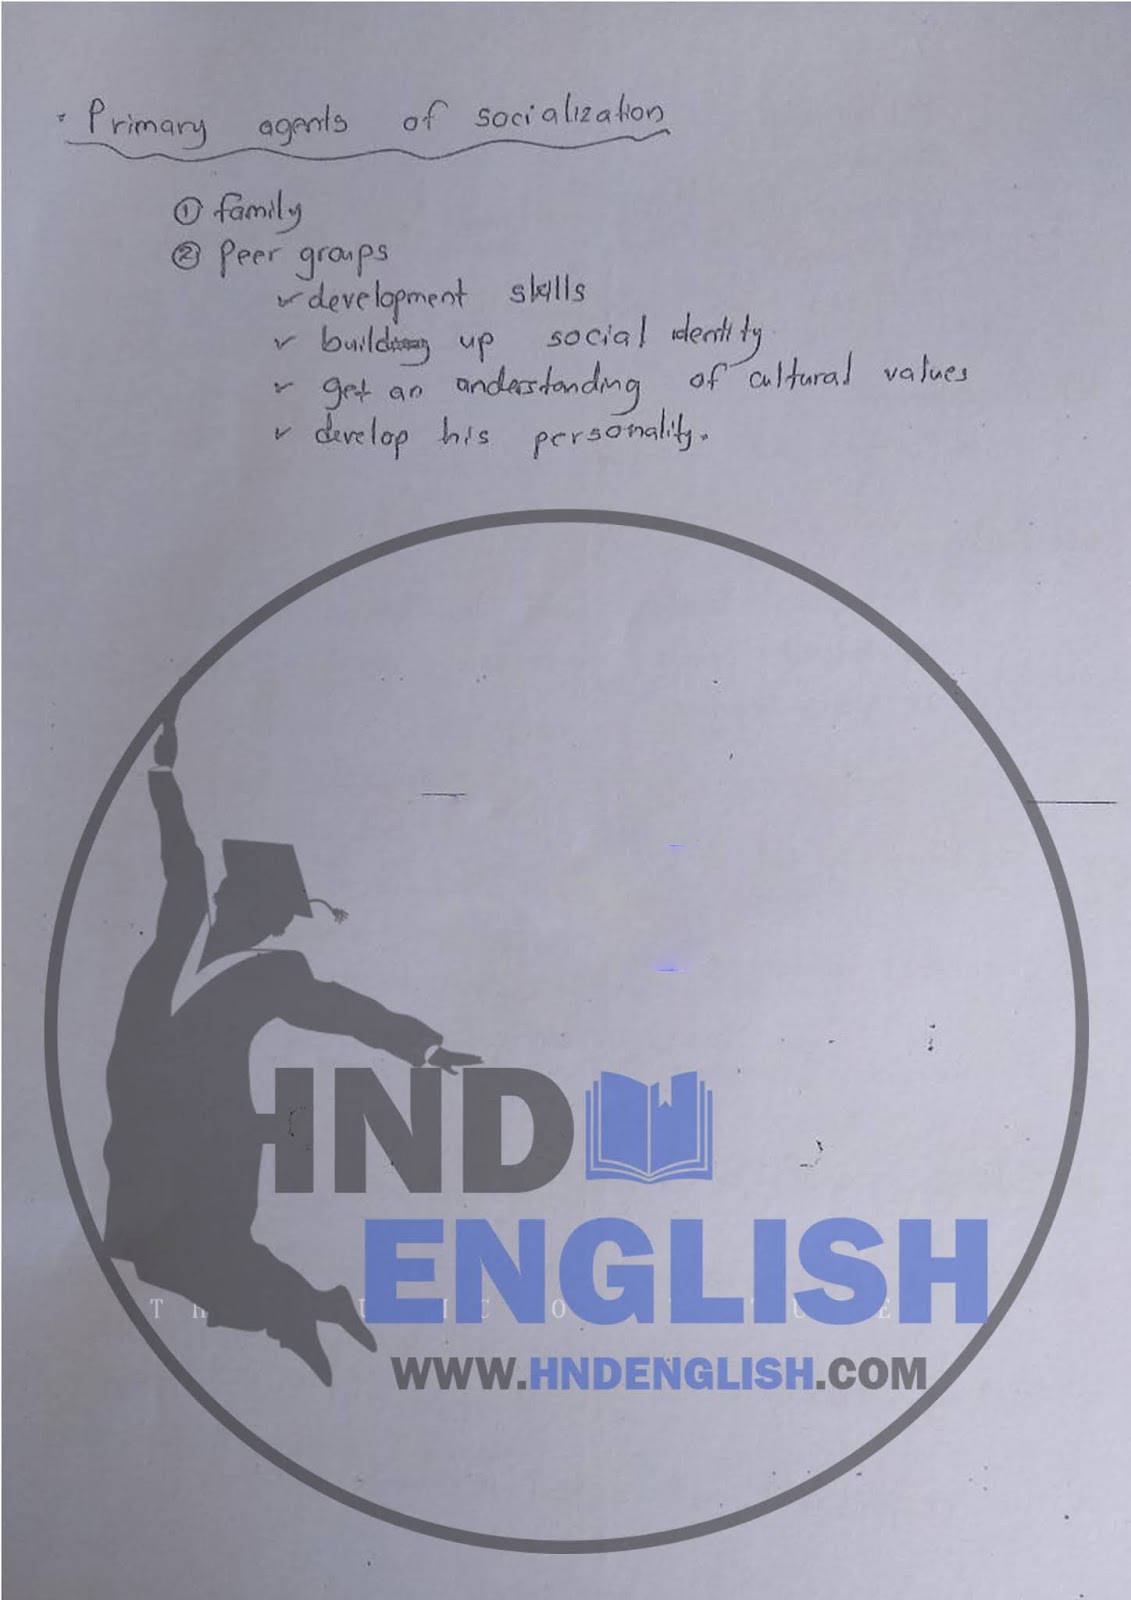 Primary agents of socialization
① family
② Peer groups
✓ development skills
✓ building up social identity
✓ get an understanding of cultural values
✓ develop his personality.
HND
ENGLISH
WWW.HNDENGLISH.COM